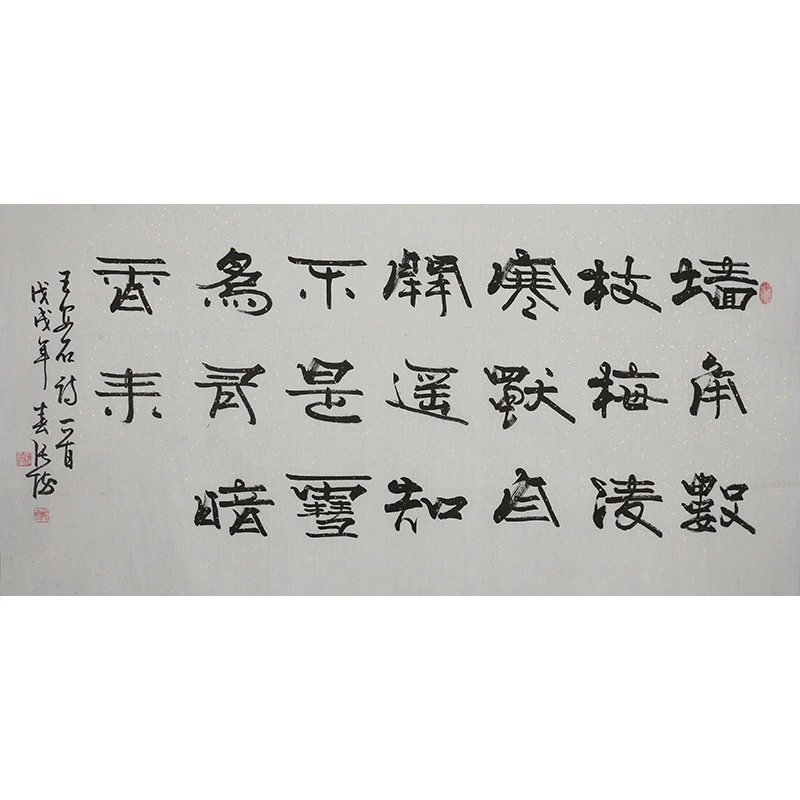 墙角數
枝梅凌
寒獨自
開遥知
不是雪
為有暗
香来
王安石詩一首
戊戌年春